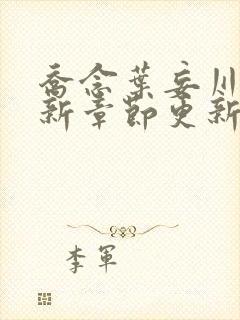 喬念葉妄川
新章節更新
李軍